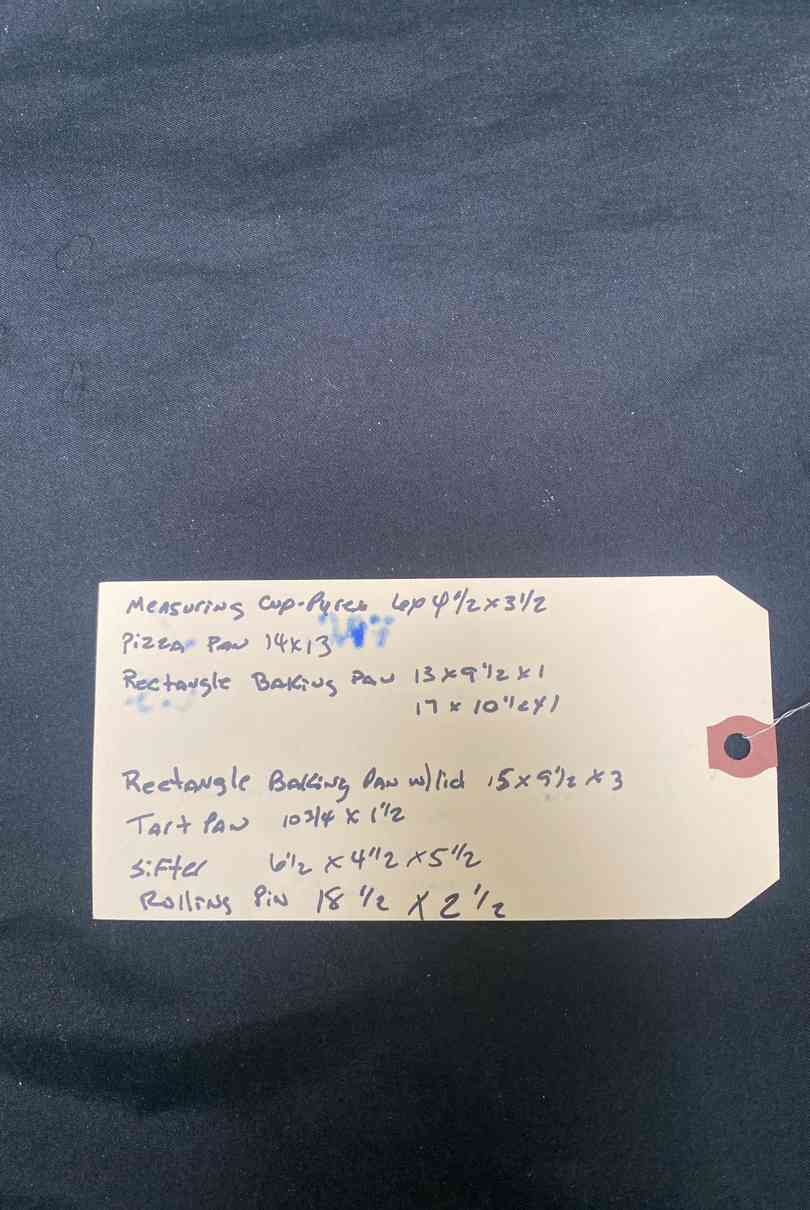 Measuring Cup-Pyrex 6x4 1/2 x 3 1/2
Pizza Pan 14x13
Rectangle Baking Pan 13 x 9 1/2 x 1
17 x 10 1/2 x 1
Rectangle Baking Pan w/lid 15 x 9 1/2 x 3
Tart Pan 10 3/4 x 1 1/2
Sifter 6 1/2 x 4 1/2 x 5 1/2
Rolling Pin 18 1/2 x 2 1/2